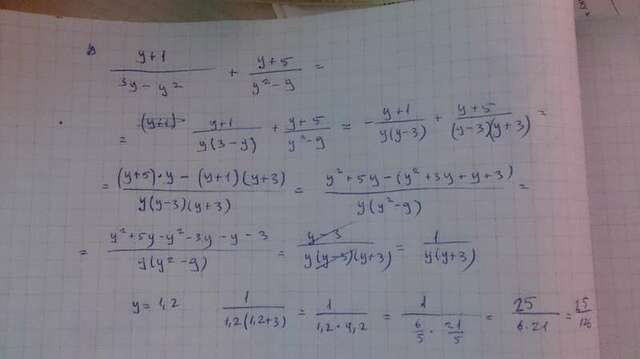 в) (y+1)/(3y-y²) + (y+5)/(y²-9) =
= (y+1)/(y(3-y)) + (y+5)/(y²-9) = -(y+1)/(y(y-3)) + (y+5)/((y-3)(y+3)) =
= ((y+5)·y-(y+1)(y+3))/(y(y-3)(y+3)) = (y²+5y-(y²+3y+y+3))/(y(y²-9)) =
= (y²+5y-y²-3y-y-3)/(y(y²-9)) = (y-3)/(y(y-3)(y+3)) = 1/(y(y+3))
y=1,2 1/(1,2(1,2+3)) = 1/(1,2·4,2) = 1/(6/5·21/5) = 25/(6·21) = 25/126